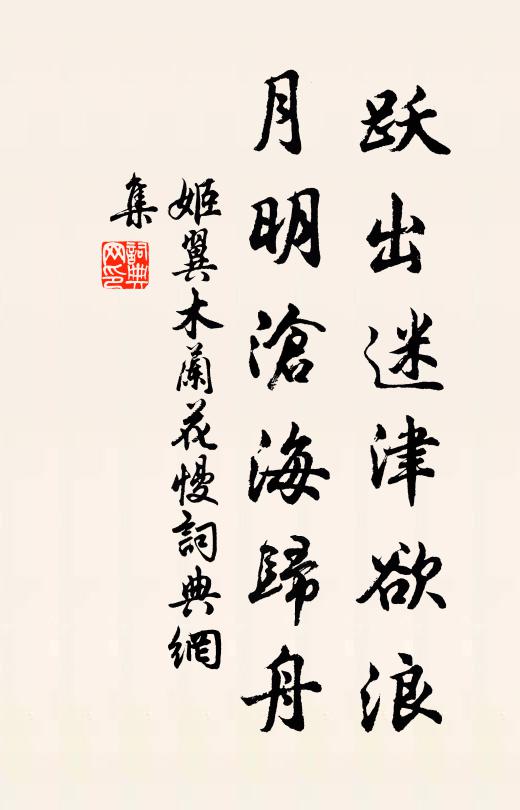 跃出迷津欲浪
月明滄海歸舟
姬翼木蘭花慢詞典網
集
詞典網印